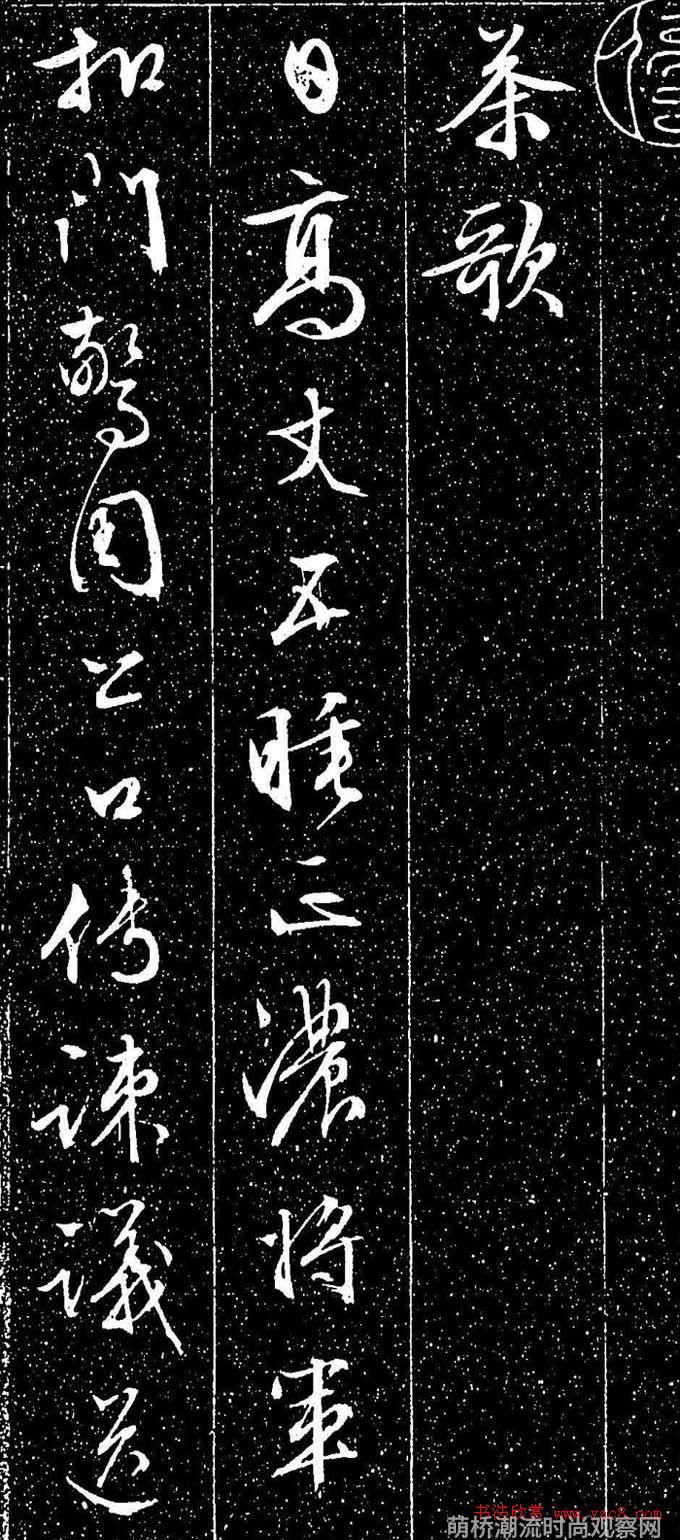 茶歌
日高丈五睡正濃將軍
扣門驚周公口傳諫議送
书法欣赏 www.yac8.com
萌桥潮流时尚观察网